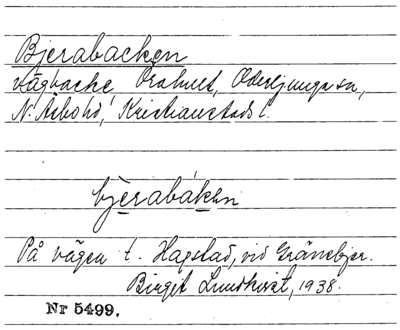 Bjerabacken
vägbacke Örahult, Oderljunga sn,
N. Åsbo hd, Kristianstads l.
bjerabáken
På vägen t. Hagstad, vid Gränsbjer.
Birgit Lundkvist, 1938.
Nr 5499.